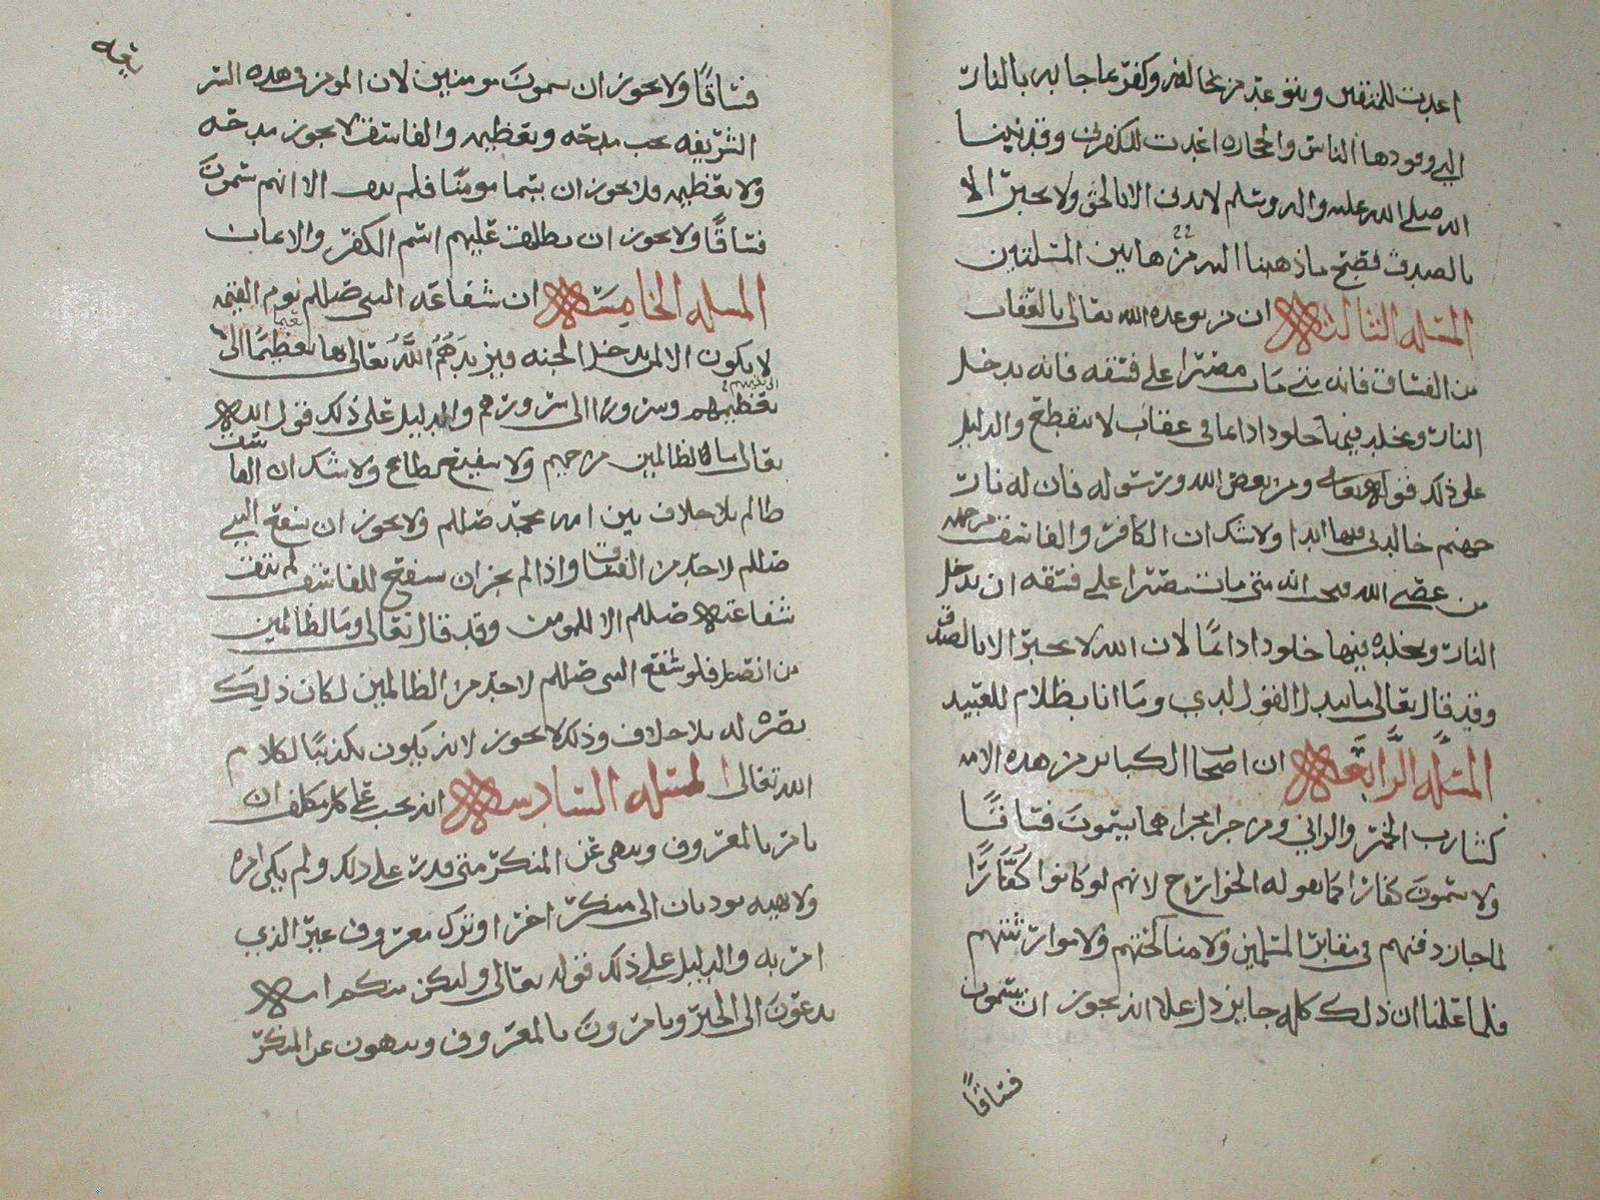 اعدت للمتقين وبتوعد من خالفه وكفر بما جا به بالنار
التي وقودها الناس والحجاره اعدت للكفرين وقد بينا
انه صلى الله عليه واله وسلم لا يدين الا بالحق ولا يخبر الا
بالصدق فصح ما ذهبنا اليه من هاتين المسلتين
المسله الثالثه ان من توعده الله تعالى بالعقاب
من الفساق فانه متى مات مصرا على فسقه فانه يدخل
النار ويخلد فيها خلودا دايما في عقاب لا ينقطع والدليل
على ذلك قوله تعالى ومن يعص الله ورسوله فان له نار
جهنم خالدين فيها ابدا ولا شك ان الكافر والفاسق من جمله
من عصى الله فيجب انه متى مات مصرا على فسقه ان يدخل
النار ويخلد فيها خلودا دائما لان الله لا يخبر الا بالصدق
وقد قال تعالى ما يبدل القول لدي وما انا بظلام للعبيد
المسله الرابعه ان اصحاب الكباير من هذه الامه
كشارب الخمر والزاني ومن جرا مجراهما يسمون فساقا
ولا يسمون كفارا كما يقوله الخوارج لانهم لو كانوا كفارا
لما جاز دفنهم في مقابر المسلمين ولا مناكحتهم ولا موارثتهم
فلما علمنا ان ذلك كله جايز دل على انه يجوز ان يسمون
فساقا
فساقا ولا يجوز ان يسمون مومنين لان المومن في هذه الشر
الشريفه يجب مدحه وتعظيمه والفاسق لا يجوز مدحه
ولا تعظيمه فلا يجوز ان يسما مومنا فلم يبق الا انهم يسمون
فساقا ولا يجوز ان يطلق عليهم اسم الكفر والايمان
المسله الخامسه ان شفاعه النبي صللم يوم القيمه
لا يكون الا لمن يدخل الجنه فيزيدهم الله تعالى بها تعظيما الى
تعظيمهم وسرورا الى سرورهم والدليل على ذلك قول الله
تعالى ما للظالمين من حميم ولا شفيع يطاع ولا شك ان الفاسق
ظالم بلا خلاف بين امه محمد صللم ولا يجوز ان يشفع النبي
صللم لاحد من الفساق واذا لم يجز ان يشفع للفاسق لم تبق
شفاعته صللم الا للمومن وقد قال تعالى وما للظالمين
من انصار فلو شفع النبي صللم لاحد من الظالمين لكان ذلك
نصره له بلا خلاف وذلك لا يجوز لانه يكون تكذيبا لكلام
الله تعالى المسله السادسه انه يجب على كل مكلف ان
يامر بالمعروف وينهى عن المنكر متى قدر على ذلك ولم يكن امره
ولا نهيه يوديان الى منكر اخر او ترك معروف غير الذي
امر به والدليل على ذلك قوله تعالى ولتكن منكم امه
يدعون الى الخير ويامرون بالمعروف وينهون عن المنكر